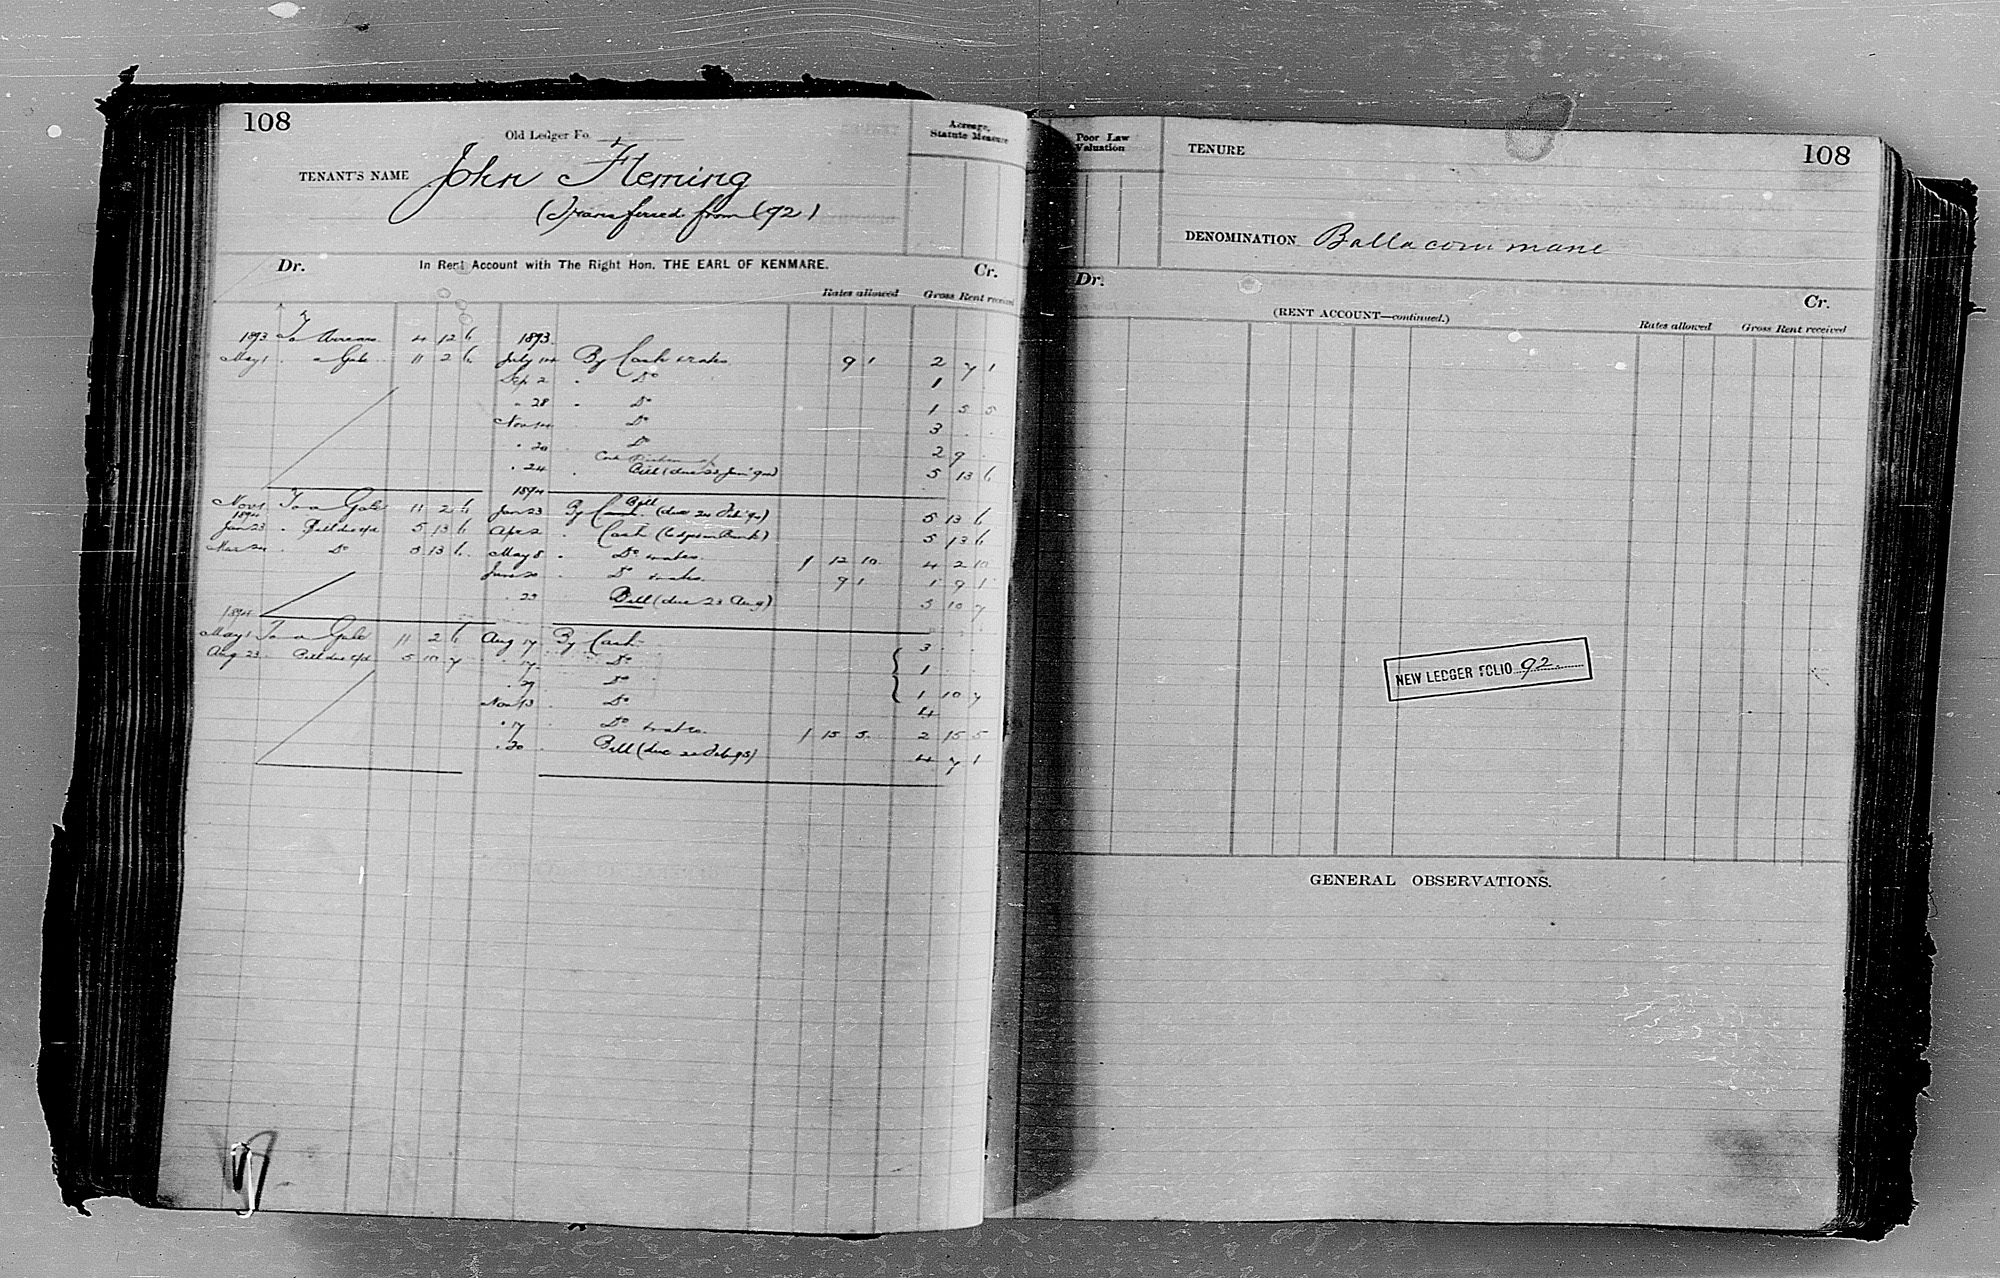 108
Old Ledger Fo.
TENANT'S NAME John Fleming
(Transferred from 92)
Acreage, Statute Measure
Dr. In Rent Account with The Right Hon. THE EARL OF KENMARE. Cr.
Rates allowed Gross Rent received
1893 To Arrears 4 12 6 1893
May 1 " a Gale 11 2 6 July 14 By Cash & rates 9 1 2 7 1
Sep 2 " Do 1 . .
" 28 " Do 1 5 5
Nov 14 Do 3 . .
" 20 Do 2 9 .
" 24 " Bill (due 23 Jan '94) 5 13 6
1894
Nov 1 To a Gale 11 2 6 Jan 23 By Bill (due 24 Feb '94) 5 13 6
1894
Jan 23 " Bill due c/d 5 13 6 Apr 2 " Cash (lodged in Bank) 5 13 6
Mar 24 " Do 5 13 6 May 8 " Do & rates. 1 12 10 4 2 10
June 20 " Do & rates. 9 1 1 9 1
" 23 Bill (due 23 Aug) 5 10 7
1894
May 1 To a Gale 11 2 6 Aug 17 By Cash 3 . .
Aug 23 Bill due c/d 5 10 7 " 17 " Do 1 . .
" 29 " Do 1 10 7
Nov 13 Do 4
" 17 " Do & rates. 1 15 5 2 15 5
" 20 " Bill (due 20 Feb 95) 4 7 1
Poor Law Valuation
TENURE
108
DENOMINATION Ballacommane
Dr. Cr.
(RENT ACCOUNT—continued.)
Rates allowed Gross Rent received
NEW LEDGER FOLIO 92
GENERAL OBSERVATIONS.